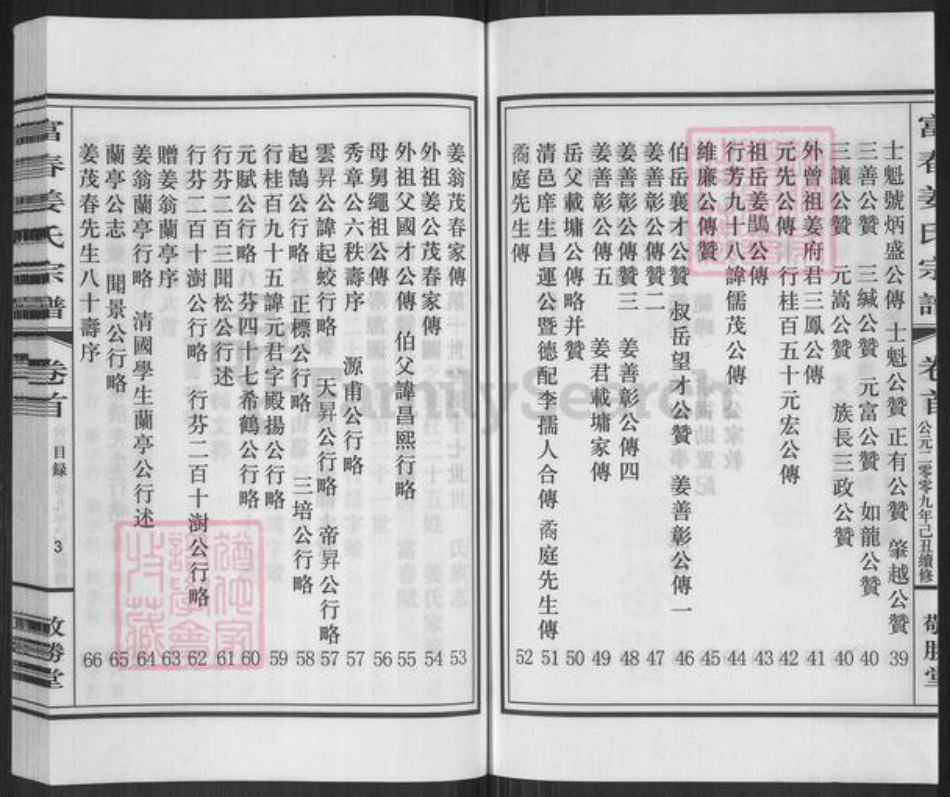 富春姜氏宗譜
卷首
公元二零零九年己丑續修
敬勝堂
士魁號炳盛公傳 士魁公贊 正有公贊 肇越公贊 39
三善公贊 三緘公贊 元富公贊 如龍公贊 40
三讓公贊 元嵩公贊 族長三政公贊 40
外曾祖姜府君三鳳公傳 41
元先公傳 行桂百五十元宏公傳 42
祖岳姜鵲公傳 43
行芳九十八諱儒茂公傳 44
維廉公傳贊 45
伯岳襄才公贊 叔岳望才公贊 姜善彰公傳一 46
姜善彰公傳贊二 47
姜善彰公傳贊三 姜善彰公傳四 48
姜善彰公傳五 姜君載墉家傳 49
岳父載墉公傳略并贊 50
清邑庠生昌運公暨德配李孺人合傳 矞庭先生傳 51
矞庭先生傳 52
姜翁茂春家傳 53
外祖姜公茂春家傳 54
外祖父國才公傳 伯父諱昌熙行略 55
母舅繩祖公傳 56
秀章公六秩壽序 源甫公行略 57
雲昇公諱起蛟行略 天昇公行略 帝昇公行略 57
起鵠公行略 正標公行略 三培公行略 58
行桂百九十五諱元君字殿揚公行略 59
元賦公行略 八芬四十七希鶴公行略 60
行芬二百三聞松公行述 61
行芬二百十澍公行略 行芬二百十澍公行略 62
贈姜翁蘭亭序 63
姜翁蘭亭行略 清國學生蘭亭公行述 64
蘭亭公志 聞景公行略 65
姜茂春先生八十壽序 66
富春姜氏宗譜
卷首
目録
3
敬勝堂
FamilySearch